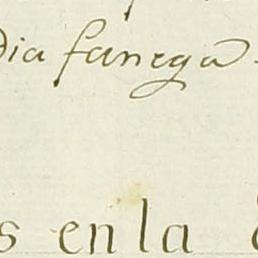 dia fanega
s en la